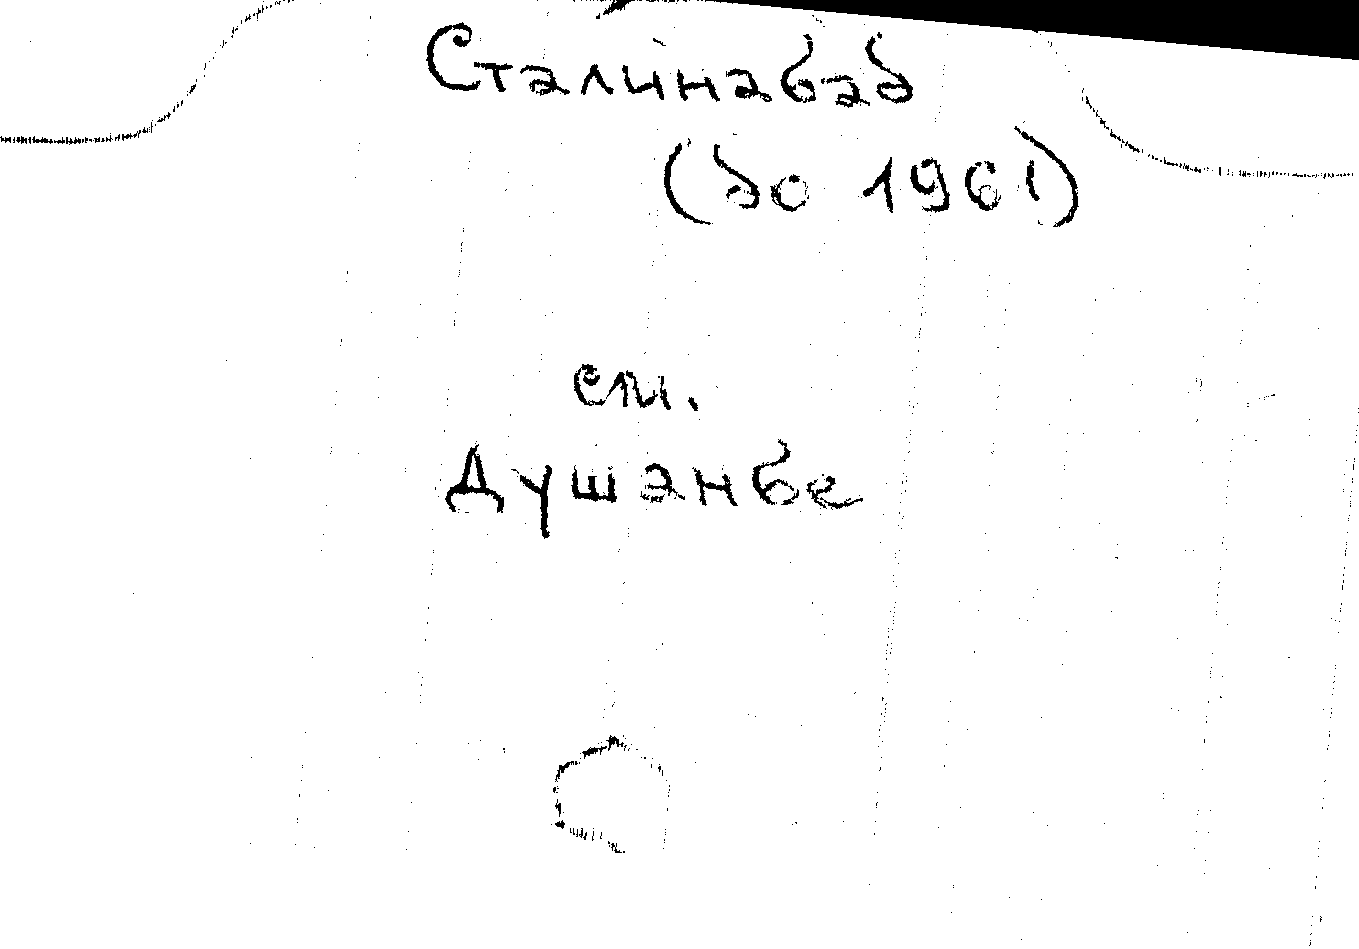 Сталинабад
(до 1961)
см.
Душанбе